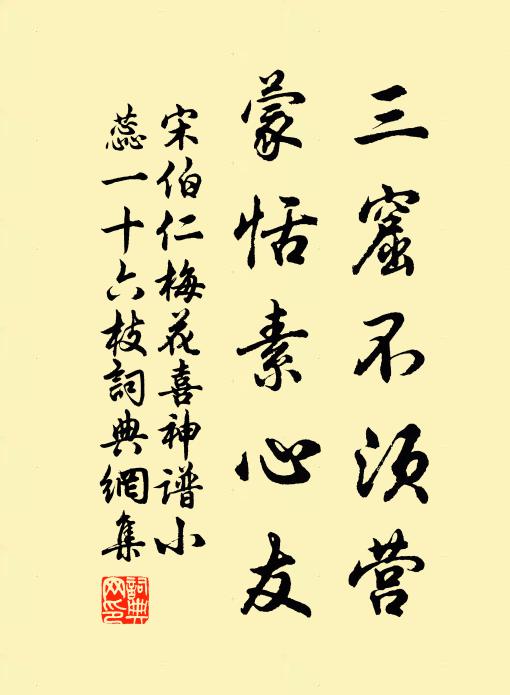 三窟不须营
蒙恬素心友
宋伯仁梅花喜神谱小
蕊一十六枝詞典網集
詞典网印